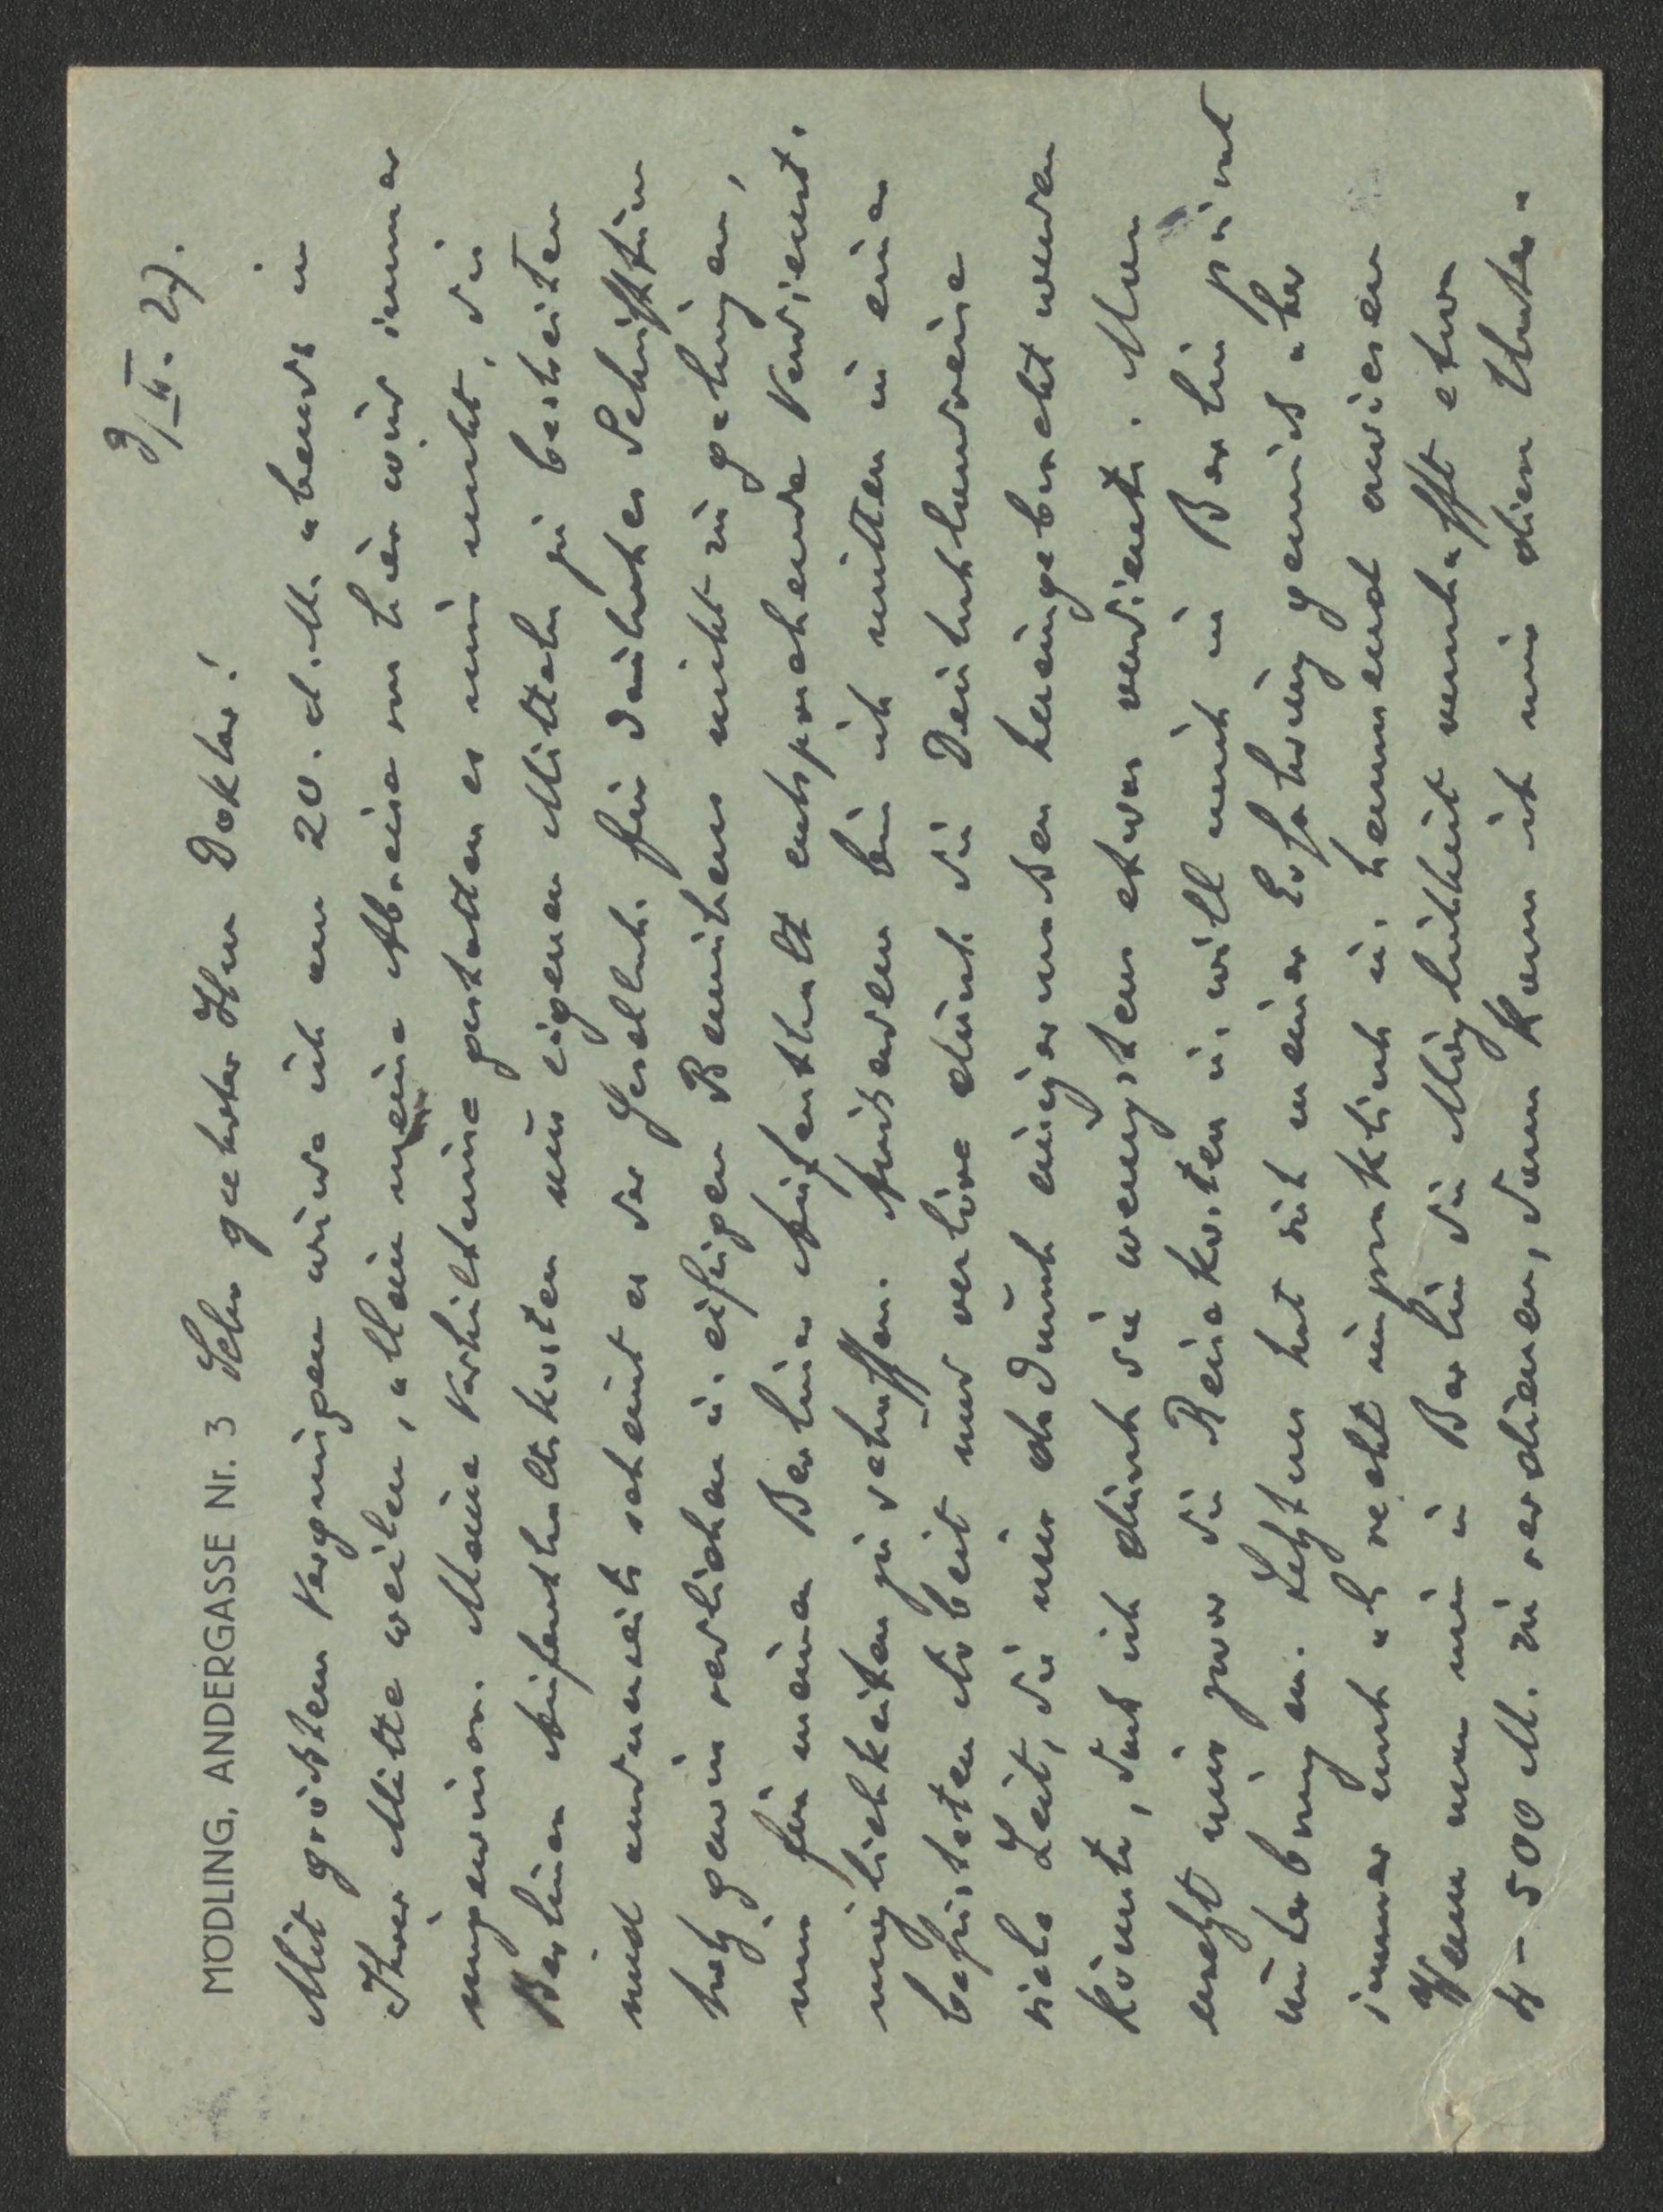 9/II. 27.
MÖDLING, ANDERGASSE Nr. 3 Sehr geehrter Herr Doktor!
Mit größtem Vergnügen würde ich am 20. d. M. abends in
Ihrer Mitte weilen, allein meine Abreise von hier wird immer
ungewisser. Meine Verhältnisse gestatten es mir nicht, die
Berliner Aufenthaltskosten aus eigenen Mitteln zu bestreiten
und andererseits scheint es der Gesellsch. für deutsches Schrifttum
trotz gewiss redlichen u. eifrigen Bemühens nicht zu gelingen,
mir für meinen Berliner Aufenthalt entsprechende Verdienst-
möglichkeiten zu schaffen. Ausserdem bin ich mitten in einer
befristeten Arbeit und verlöre durch die Deutschlandreise
viele Zeit, die nur dadurch einigermassen hereingebracht werden
könnte, dass ich durch sie wenigstens etwas verdiente. Man
ersetzt mir zwar die Reisekosten u. will mich in Berlin privat
unterbringen. Letzteres hat sich meiner Erfahrung gemäss aber
immer noch als recht unpraktisch u. hemmend erwiesen
Wenn man mir in Berlin die Möglichkeit verschafft etwa
4-500 M. zu verdienen, dann kann ich mir diese Unter-